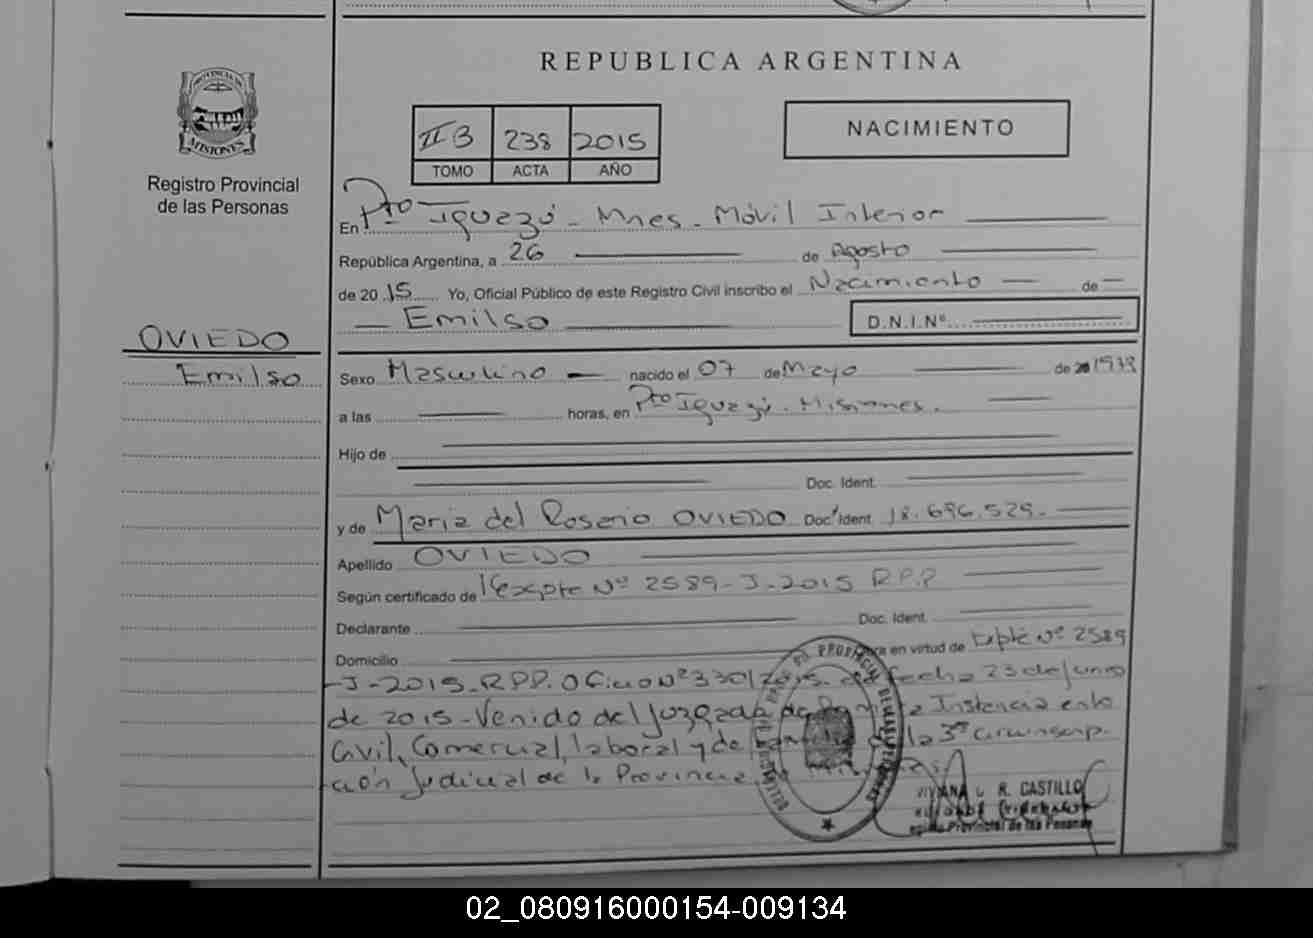 REPUBLICA ARGENTINA
PROVINCIA DE
MISIONES
Registro Provincial
de las Personas
II B 238 2015
TOMO ACTA AÑO
NACIMIENTO
En Pto Iguazú - Mnes - Móvil Interior
República Argentina, a 26 de Agosto
de 2015 Yo, Oficial Público de este Registro Civil inscribo el Nacimiento de
Emilso D.N.I.Nº
OVIEDO
Emilso
Sexo Masculino nacido el 07 de Mayo de
a las horas, en Pto Iguazú - Misiones.
Hijo de
Doc. Ident.
y de Maria del Rosario OVIEDO Doc. Ident. 18.696.529.
Apellido OVIEDO
Según certificado de Expte Nº 2589-J-2015 R.P.P
Declarante Doc. Ident.
Domicilio en virtud de Expte Nº 2589
-J-2015-R.P.P. Oficio Nº 330/2015. de fecha 23 de Junio
de 2015 - Venido del Juzgado de Instancia en lo
Civil, Comercial, laboral y de la 3ª Circunscrip-
ción Judicial de la Provincia
VIVIANA R. CASTILLO
Provincial de las Personas
02_080916000154-009134